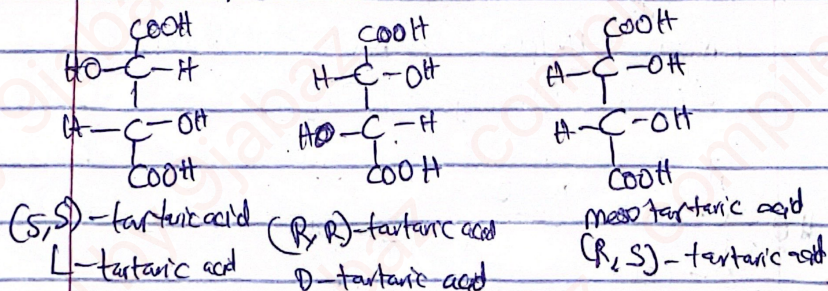 COOH
HO-C-H
H-C-OH
COOH
(S,S)-tartaric acid
L-tartaric acid
COOH
H-C-OH
HO-C-H
COOH
(R,R)-tartaric acid
D-tartaric acid
COOH
H-C-OH
H-C-OH
COOH
meso tartaric acid
(R,S)-tartaric acid